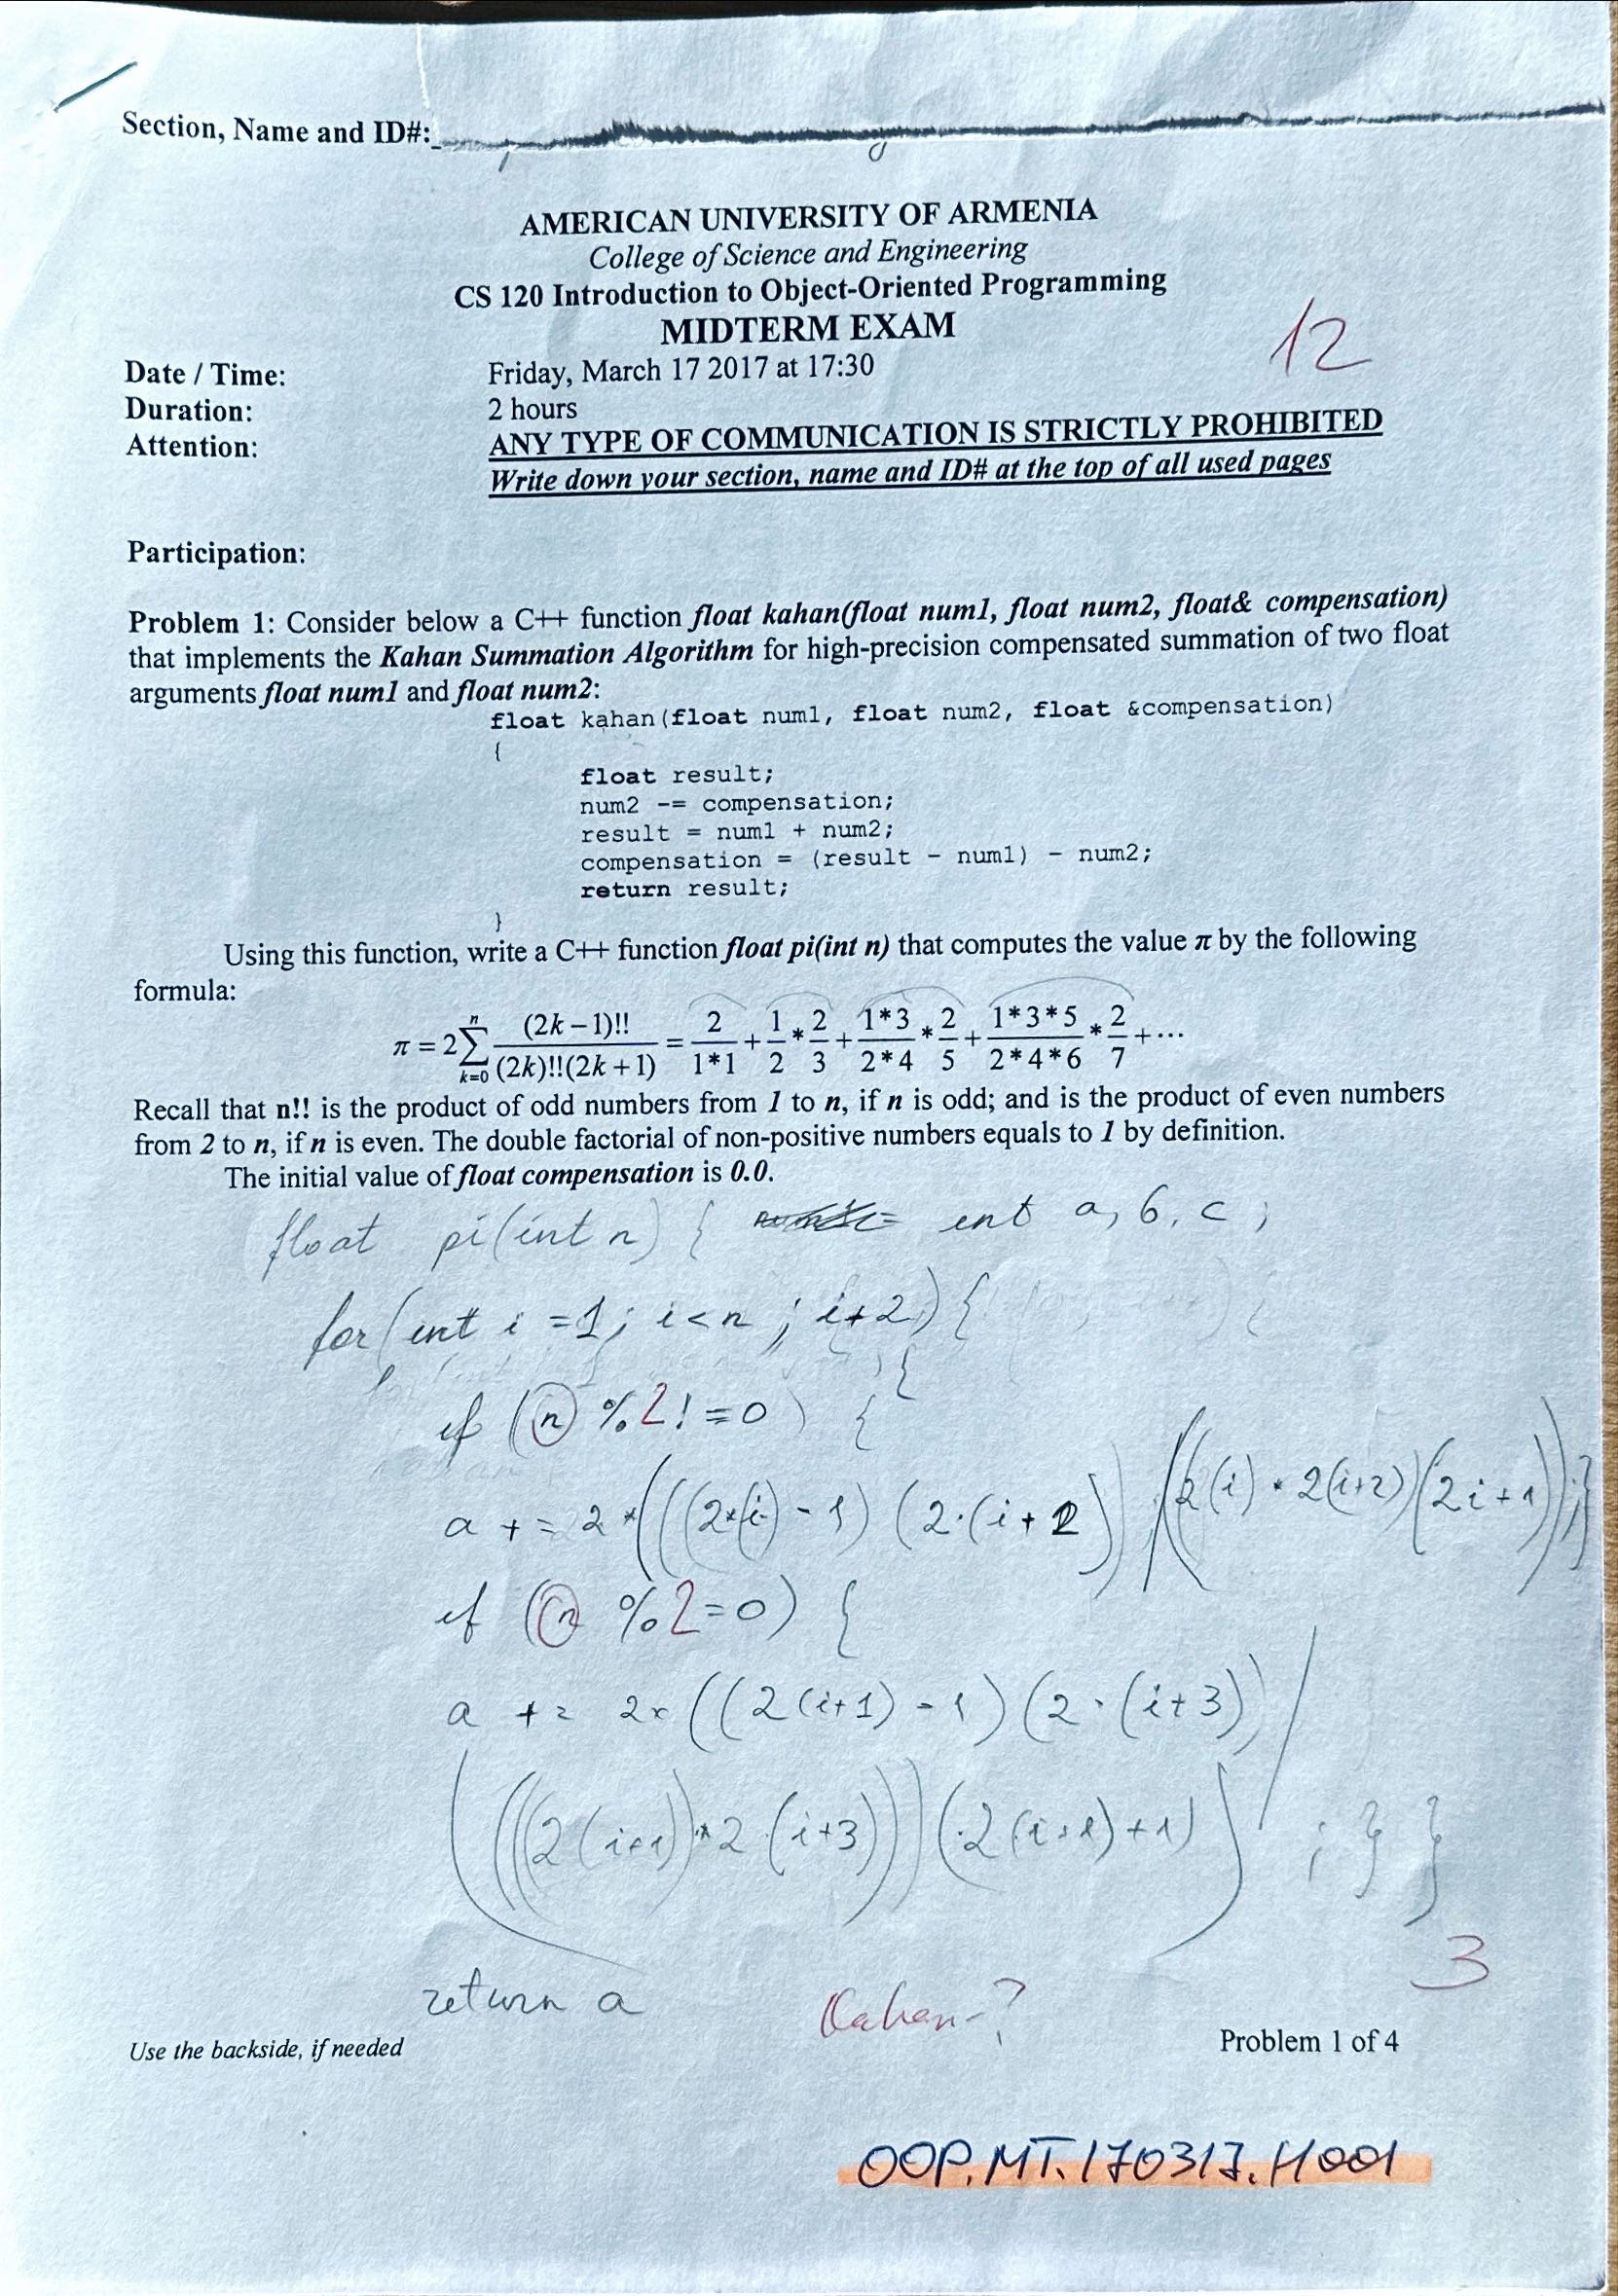 Section, Name and ID#:
AMERICAN UNIVERSITY OF ARMENIA
College of Science and Engineering
CS 120 Introduction to Object-Oriented Programming
MIDTERM EXAM
12
Date / Time: Friday, March 17 2017 at 17:30
Duration: 2 hours
Attention: ANY TYPE OF COMMUNICATION IS STRICTLY PROHIBITED
Write down your section, name and ID# at the top of all used pages
Participation:
Problem 1: Consider below a C++ function float kahan(float num1, float num2, float& compensation)
that implements the Kahan Summation Algorithm for high-precision compensated summation of two float
arguments float num1 and float num2:
float kahan(float num1, float num2, float &compensation)
{
float result;
num2 -= compensation;
result = num1 + num2;
compensation = (result - num1) - num2;
return result;
}
Using this function, write a C++ function float pi(int n) that computes the value π by the following
formula:
π = 2 ∑_{k=0}^{n} (2k – 1)!! / ((2k)!!(2k + 1)) = 2/(1*1) + 1/2 * 2/3 + (1*3)/(2*4) * 2/5 + (1*3*5)/(2*4*6) * 2/7 + ···
Recall that n!! is the product of odd numbers from 1 to n, if n is odd; and is the product of even numbers
from 2 to n, if n is even. The double factorial of non-positive numbers equals to 1 by definition.
The initial value of float compensation is 0.0.
float pi(int n) { int a, b, c ;
for (int i = 1; i < n ; i+2) {
{
if (n % 2 ! = 0) {
a + = 2 * (((2*(i) - 1) (2·(i + 2)) / ((2(i) * 2(i+2))(2i + 1)); }
if (n % 2 = 0) {
a += 2 * ((2(i+1) - 1) (2·(i+3)) /
(((2(i+1)) * 2(i+3))) (2(i+1) + 1) ) ; } }
3
return a
Kahan-?
Use the backside, if needed
Problem 1 of 4
OOP.MT.170317.H001